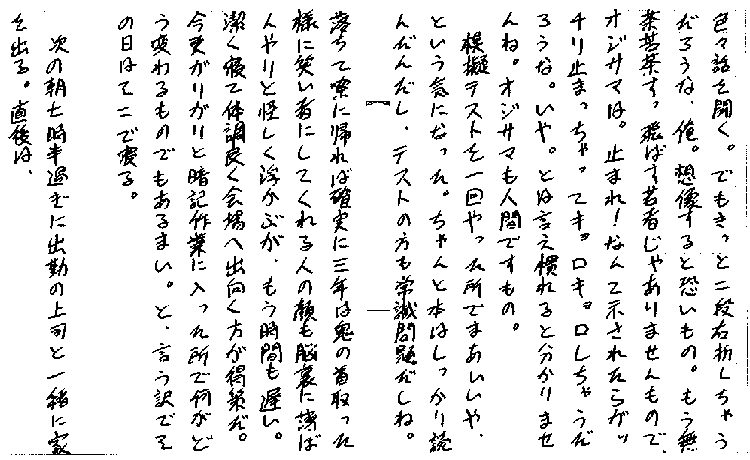 色々話を聞く。でもきっと二段右折しちゃう
だろうな、俺。想像すると恐いもの。もう無
茶苦茶すっ飛ばす若者じゃありませんもので、
オジサマは。止まれ！なんて示されたらガッ
チリ止まっちゃってキョロキョロしちゃうだ
ろうな。いや。とは言え慣れると分かりませ
んね。オジサマも人間ですもの。
模擬テストを一回やった所でまあいいや、
という気になった。ちゃんと本はしっかり読
んだんだし、テストの方も常識問題だしね。
落ちて寮に帰れば確実に三年は鬼の首取った
様に笑い者にしてくれる人の顔も脳裏に薄ぼ
んやりと怪しく浮かぶが、もう時間も遅い。
潔く寝て体調良く会場へ出向く方が得策だ。
今更がりがりと暗記作業に入った所で何がど
う変わるものでもあるまい。と、言う訳でそ
の日はそこで寝る。
次の朝七時半過ぎに出勤の上司と一緒に家
を出る。直後は、